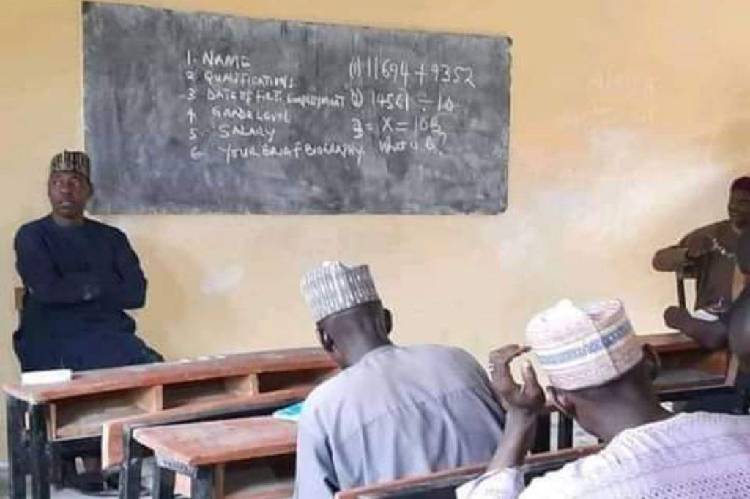 1. NAME
2 QUALIFICATIONS
3 DATE OF FIRST EMPLOYMENT
4 GRADE LEVEL
5 SALARY
6 YOUR BRIEF BIOGRAPHY.
(1) 11694 + 9352
14561 ÷ 10
= X =
What is